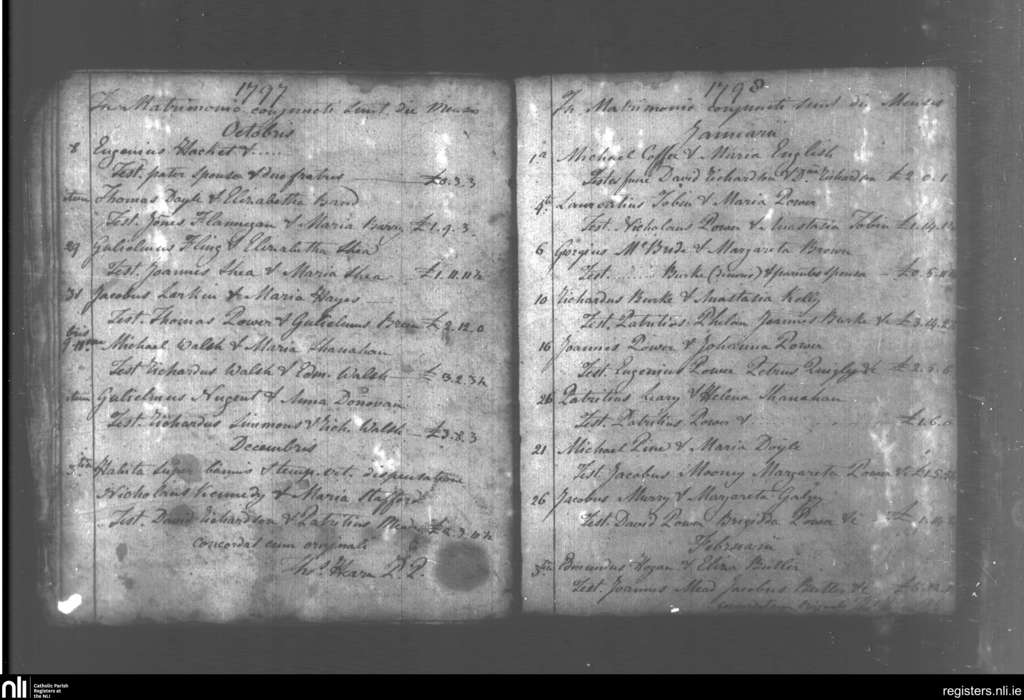 1797
In Matrimonio conjuncti sunt die Mensis
Octobris
8 Eugenius Hacket & .....
Test. pater sponsa & duo fratres £0.3.3
item Thomas Doyle & Elizabetha
Test. Jones Flannegan & Maria Barry £1.9.3.
29 Gulielmus Fling & Elizabetha Shea
Test. Joannes Shea & Maria Shea £1.11.11½
31 Jacobus Larkin & Maria Hayes
Test. Thomas Power & Gulielmus Breen £2.12.0
Michael Walsh & Maria Shanahan
Test Richardus Walsh & Edm. Walsh £3.2.3½
item Gulielmus Nugent & Anna Donovan
Test. Richardus Simmons & Rich. Walsh £3.8.3
Decembris
Habita super bannis & temp. vet. dispensatione
Nicholaus Kennedy & Maria Stafford
Test. David Richardson & Patritius Mead
concordat cum originali
Thos. Hearn P.P.
1798
In Matrimonio conjuncti sunt die Mensis
Januarii
1a Michael Coffee & Maria English
Testes fuere David Richardson & Richardson £2.0.1
4th Laurentius Tobin & Maria Power
Test. Nicholaus Power & Anastasia Tobin
6 Gorgius McBride & Margareta Brown
Test. ..... Burke & parentes sponsa
10 Richardus Burke & Anastasia Kelly
Test. Patritius Phelan Joannes Burke &c
16 Joannes Power & Johanna Power
Test. Eugenius Power Petrus Quigly &c
Patritius Leary & Helena Shanahan
Test. Patritius Power & £1.6.0
21 Michael Pine & Maria Doyle
Test. Jacobus Mooney Margareta Power &c
26 Jacobus Murry & Margareta
Test. David Power Brigidda Power &c
Februarii
Edmundus Hogan & Eliza Butler
Test. Joannes Mead Jacobus Butler &c
concordat cum originali
nli
Catholic Parish
Registers at
the NLI
registers.nli.ie